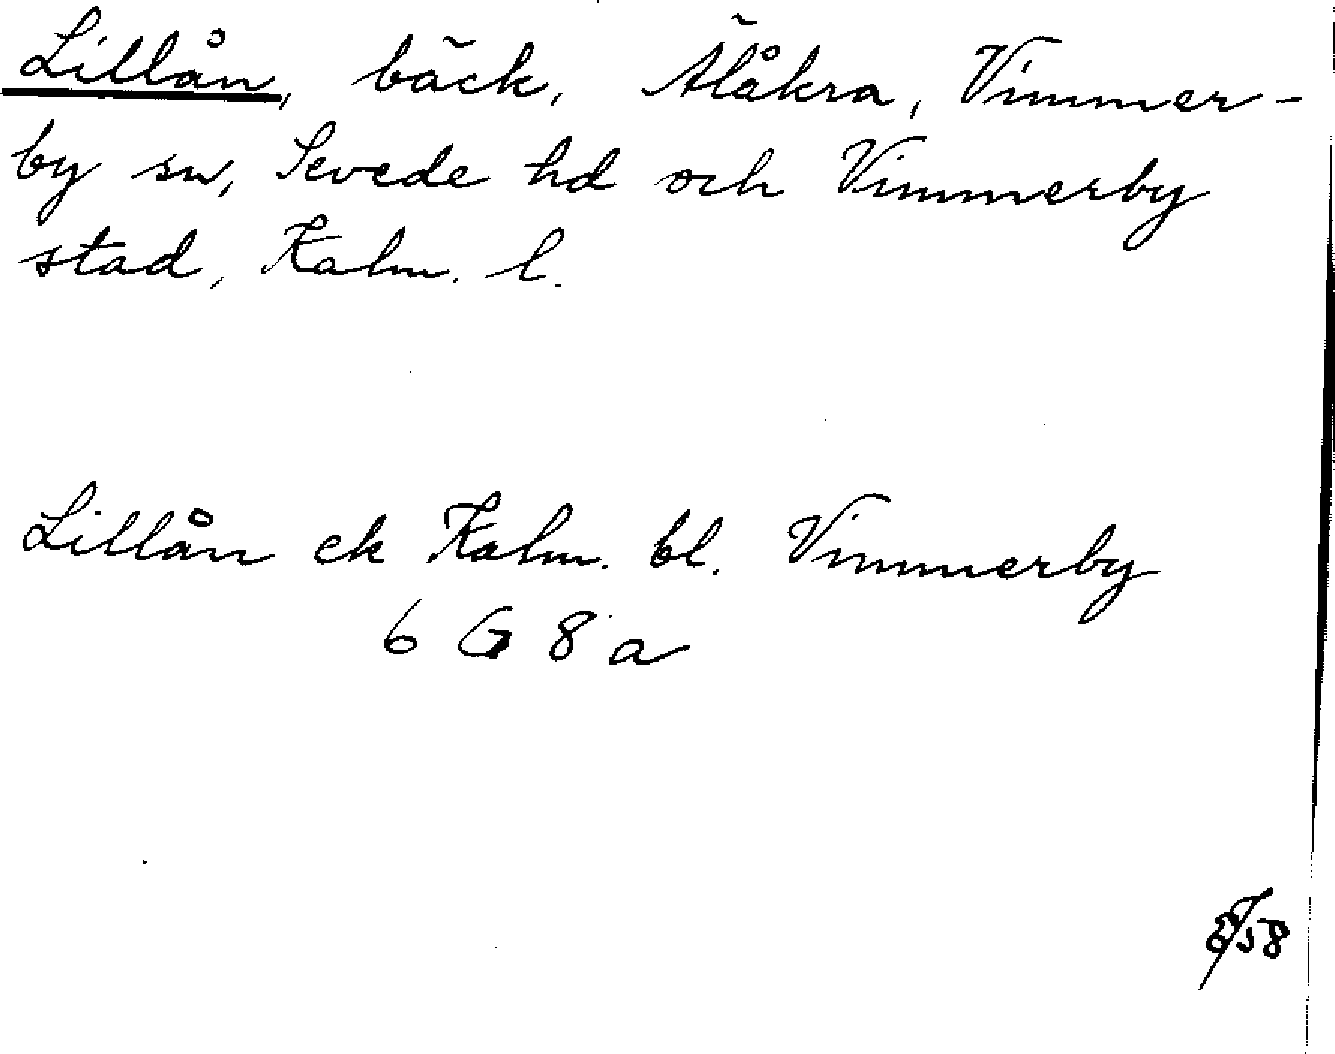 Lillån, bäck, Älåkra, Vimmer-
by sn, Sevede hd och Vimmerby
stad, Kalm. l.
Lillån ek Kalm. bl. Vimmerby
6 G 8 a